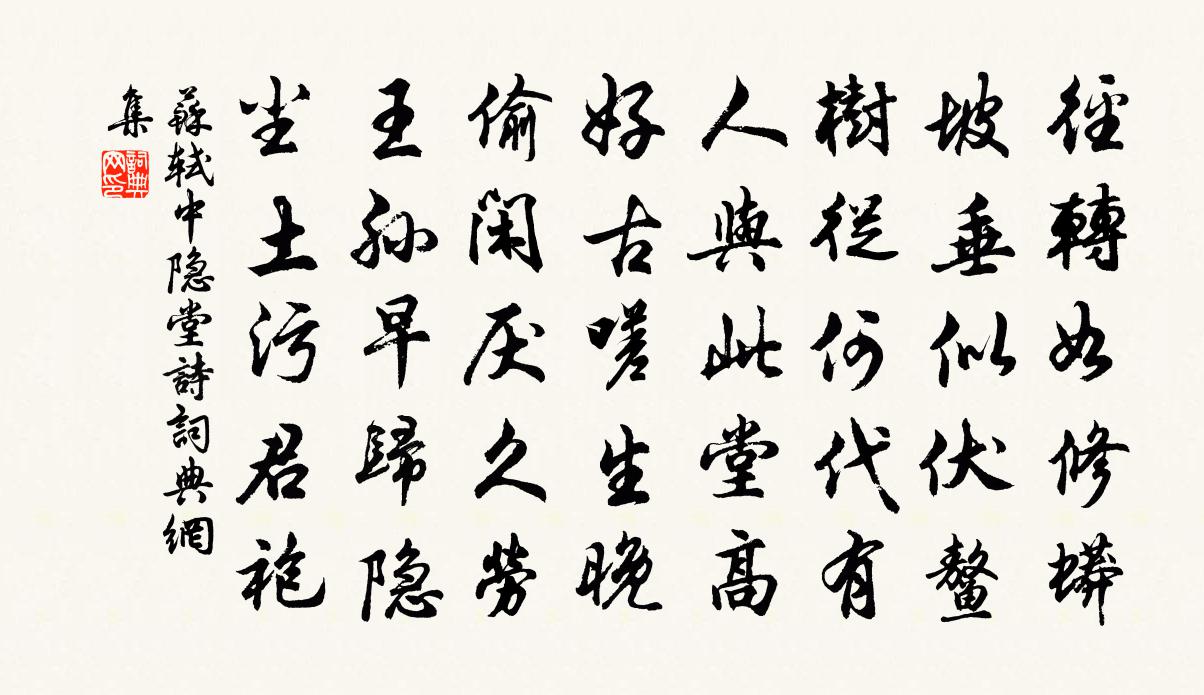 徑轉如修蟒
坡垂似伏鰲
樹從何代有
人與此堂高
好古嗟生晚
偷閑厌久勞
王孙早歸隐
尘土污君袍
蘇軾中隐堂詩詞典網
集
詞典网印